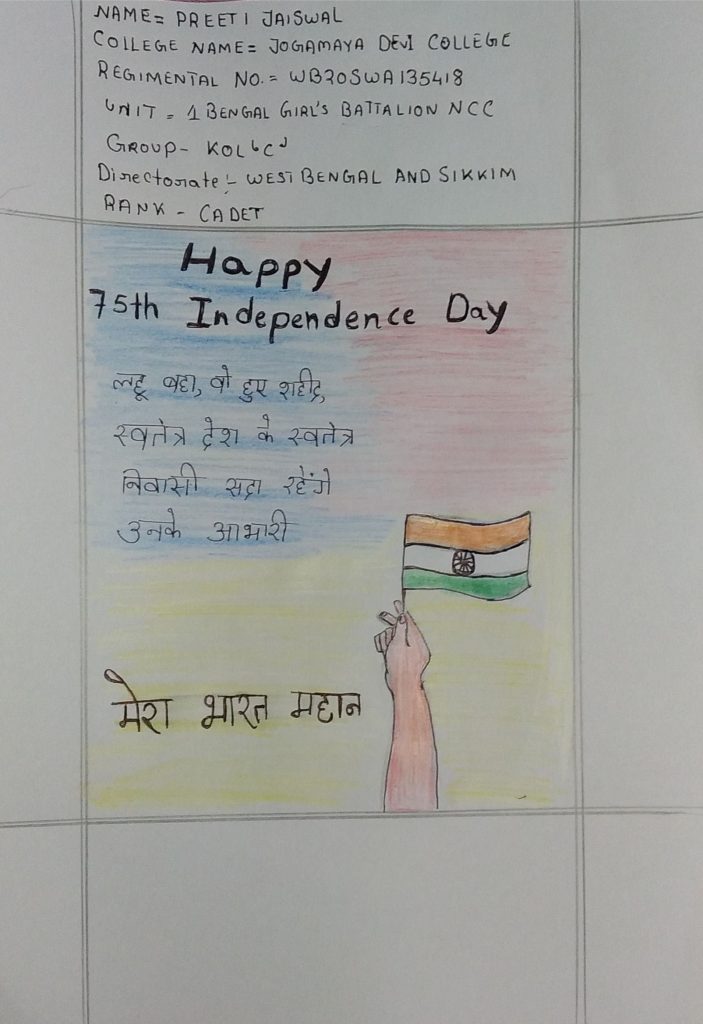 NAME= PREETI JAISWAL
COLLEGE NAME= JOGAMAYA DEVI COLLEGE
REGIMENTAL NO.= WB20SWA135418
UNIT = 1 BENGAL GIRL'S BATTALION NCC
GROUP- KOL 'C'
Directorate:- WEST BENGAL AND SIKKIM
RANK - CADET
Happy
75th Independence Day
लहू बहा, वो हुए शहीद,
स्वतंत्र देश के स्वतंत्र
निवासी सदा रहेंगे
उनके आभारी
मेरा भारत महान